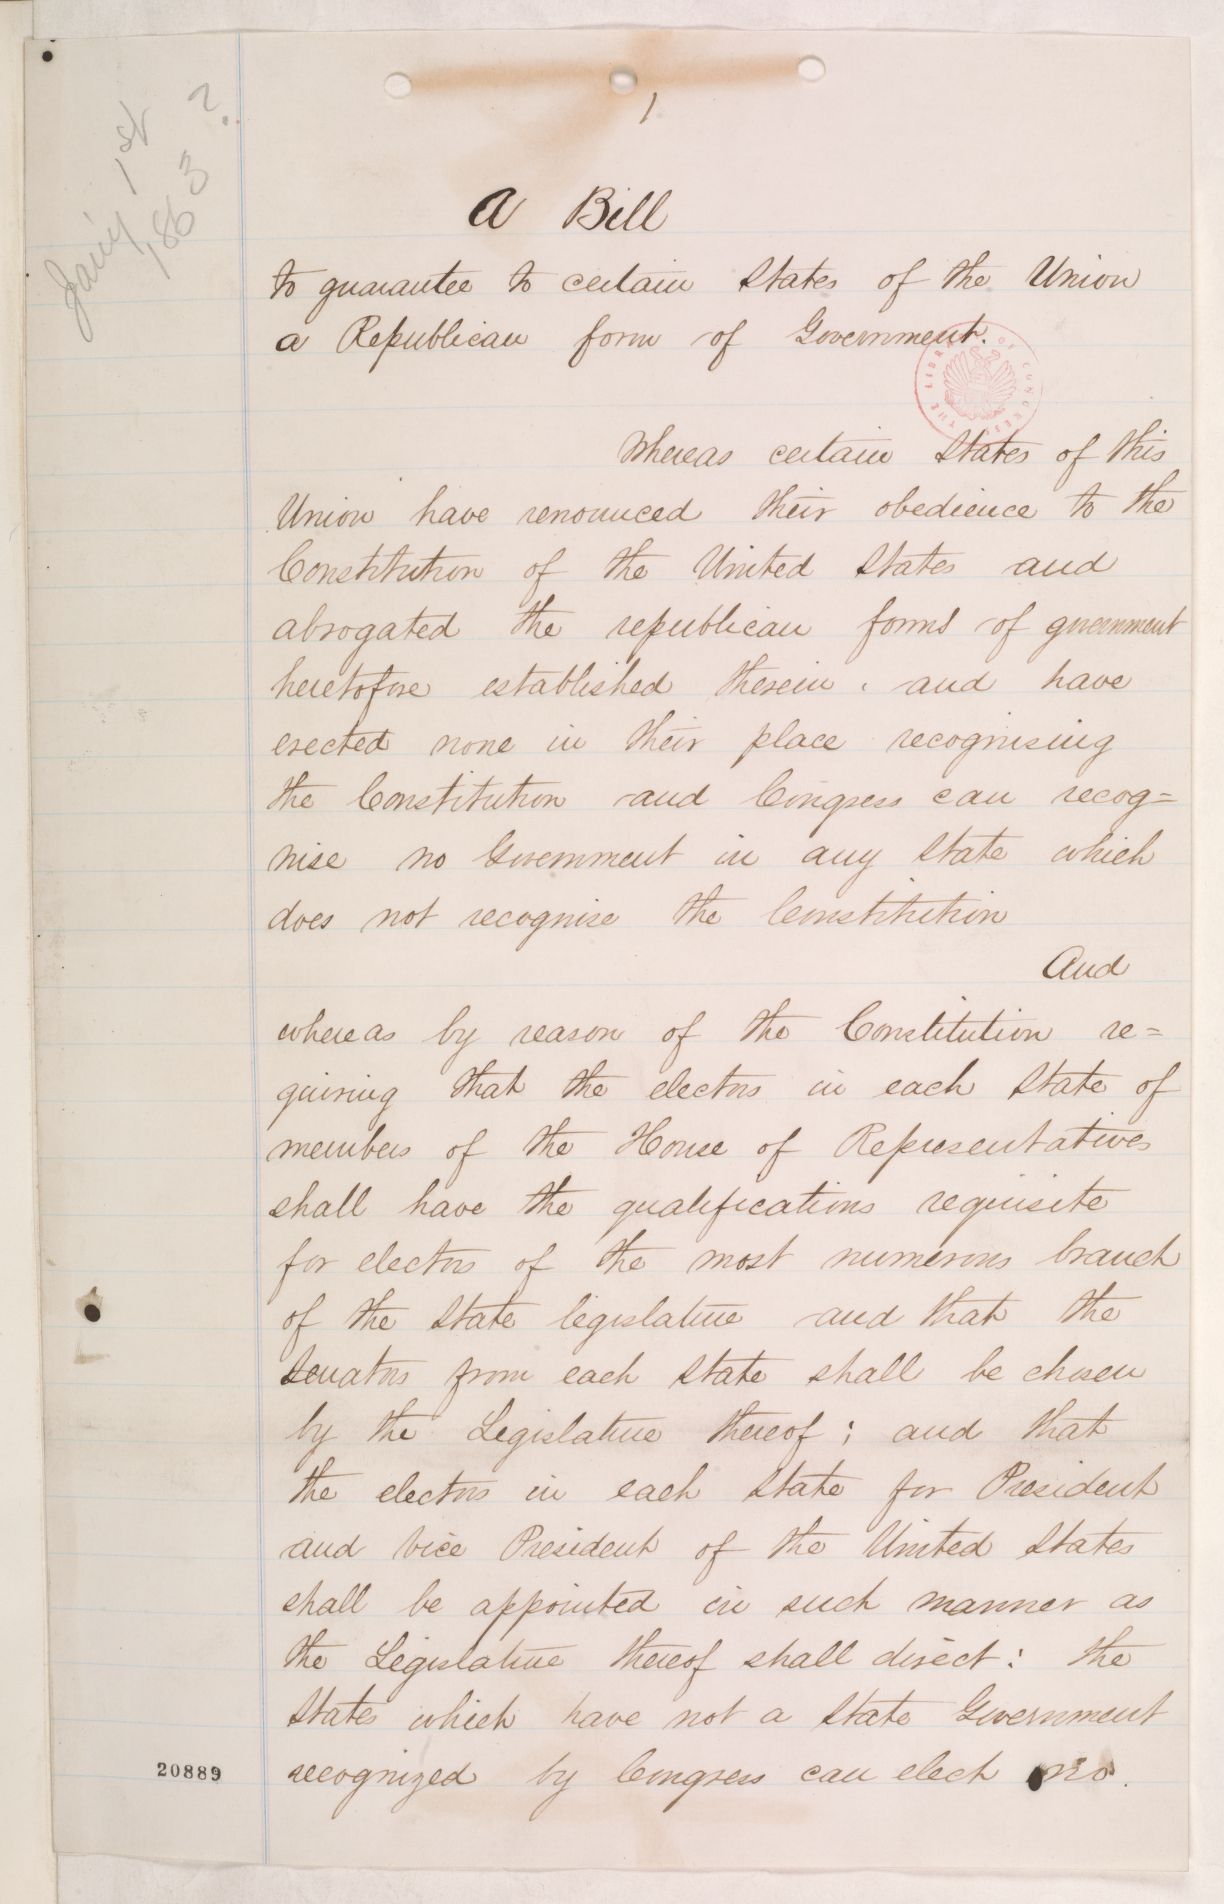 Jan'y 1st
1863 ?
1
A Bill
to guarantee to certain States of the Union
a Republican form of Government.
THE LIBRARY OF CONGRESS
Whereas certain States of this
Union have renounced their obedience to the
Constitution of the United States and
abrogated the republican forms of government
heretofore established therein, and have
erected none in their place recognising
the Constitution and Congress can recog=
nise no Government in any State which
does not recognise the Constitution
And
whereas by reason of the Constitution re=
quiring that the electors in each State of
members of the House of Representatives
shall have the qualifications requisite
for electors of the most numerous branch
of the State legislature and that the
Senators from each State shall be chosen
by the Legislature thereof; and that
the electors in each State for President
and Vice President of the United States
shall be appointed in such manner as
the Legislature thereof shall direct: the
States which have not a State Government
recognized by Congress can elect no
20889